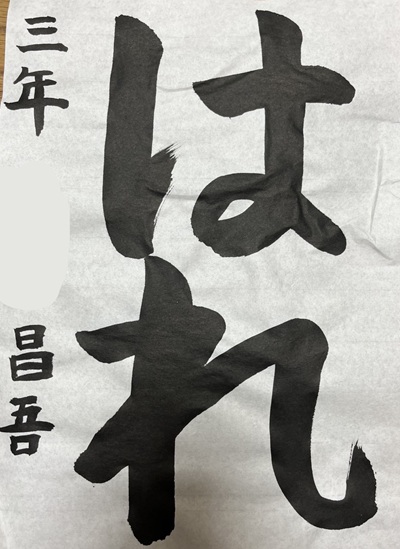 はれ
三年 昌吾